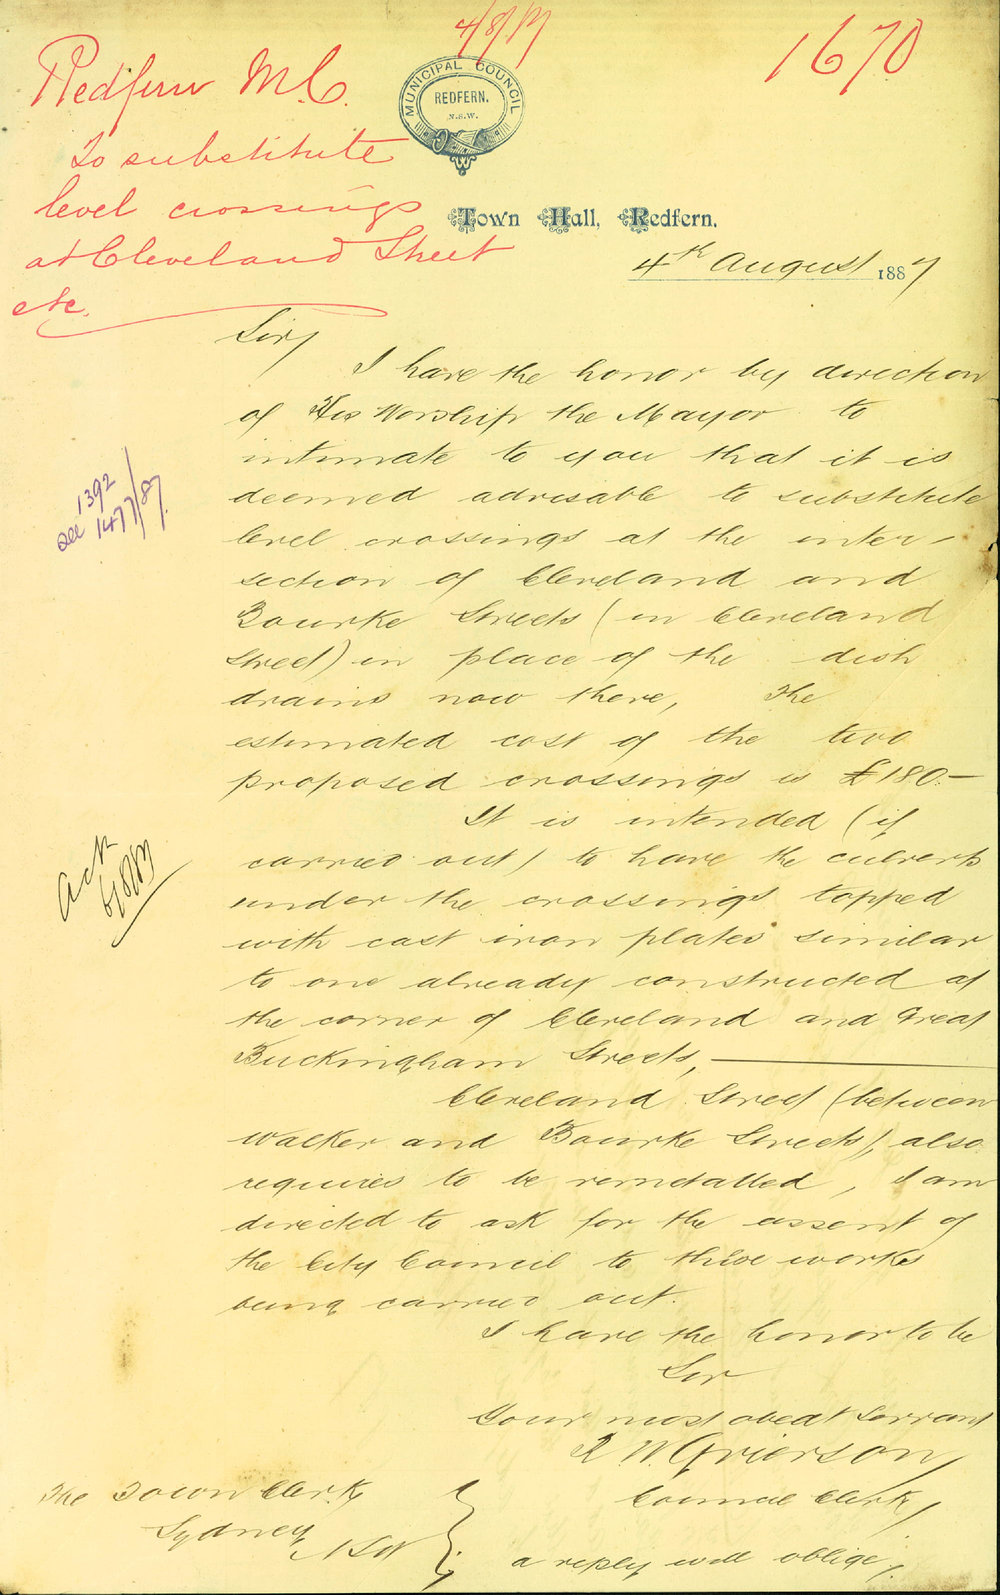 4/8/87
1670
Redfern M.C.
To substitute
level crossings
at Cleveland Street
etc.
MUNICIPAL COUNCIL
REDFERN.
N.S.W.
Town Hall, Redfern.
4th August 1887
Sir,
I have the honor by direction
of His Worship the Mayor to
intimate to you that it is
deemed advisable to substitute
level crossings at the inter-
section of Cleveland and
Bourke Streets (in Cleveland
Street) in place of the dish
drains now there, The
estimated cost of the two
proposed crossings is £180.-
It is intended (if
carried out) to have the culverts
under the crossings topped
with cast iron plates similar
to one already constructed at
the corner of Cleveland and Great
Buckingham Streets,
Cleveland Street (between
Walker and Bourke Streets), also
requires to be remetalled, I am
directed to ask for the assent of
the City Council to these works
being carried out.
I have the honor to be
Sir
Your most obedt Servant
Grierson
Council Clerk,
The Town Clerk,
Sydney,
NSW
a reply will oblige,
1392
see 1477/87.
Ack